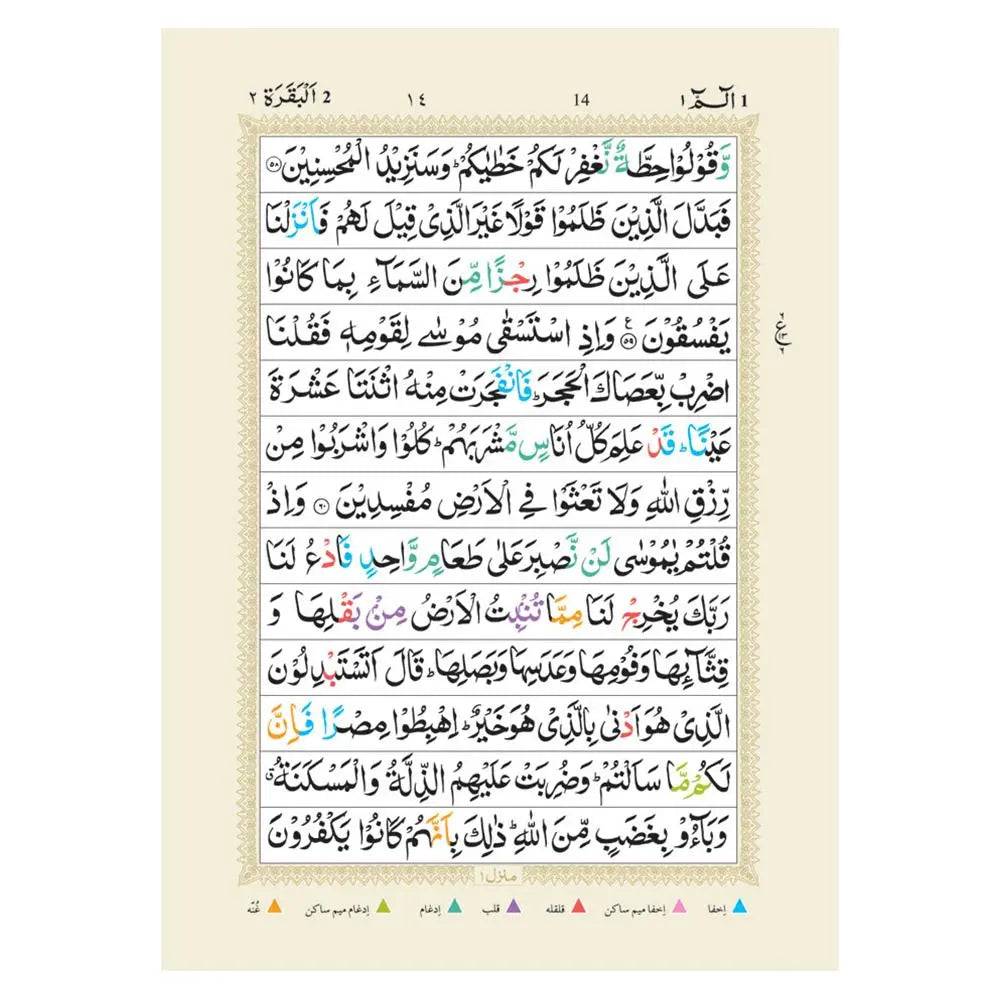 1 الٓـمّٓ ١ 14 ١٤ 2 اَلْبَقَرَة ٢
وَّقُوْلُوْا حِطَّةٌ نَّغْفِرْ لَكُمْ خَطٰيٰكُمْ ؕ وَسَنَزِيْدُ الْمُحْسِنِيْنَ ﴿۵۸﴾
فَبَدَّلَ الَّذِيْنَ ظَلَمُوْا قَوْلًا غَيْرَ الَّذِىْ قِيْلَ لَهُمْ فَاَنْزَلْنَا
عَلَى الَّذِيْنَ ظَلَمُوْا رِجْزًا مِّنَ السَّمَآءِ بِمَا كَانُوْا
يَفْسُقُوْنَ ﴿۵۹﴾ ع وَاِذِ اسْتَسْقٰى مُوْسٰى لِقَوْمِهٖ فَقُلْنَا
اضْرِبْ بِّعَصَاكَ الْحَجَرَ ؕ فَانْفَجَرَتْ مِنْهُ اثْنَتَا عَشْرَةَ
عَيْنًا ؕ قَدْ عَلِمَ كُلُّ اُنَاسٍ مَّشْرَبَهُمْ ؕ كُلُوْا وَاشْرَبُوْا مِنْ
رِّزْقِ اللّٰهِ وَلَا تَعْثَوْا فِى الْاَرْضِ مُفْسِدِيْنَ ﴿۶۰﴾ وَاِذْ
قُلْتُمْ يٰمُوْسٰى لَنْ نَّصْبِرَ عَلٰى طَعَامٍ وَّاحِدٍ فَادْعُ لَنَا
رَبَّكَ يُخْرِجْ لَنَا مِمَّا تُنْۢبِتُ الْاَرْضُ مِنْۢ بَقْلِهَا وَ
قِثَّآئِهَا وَفُوْمِهَا وَعَدَسِهَا وَبَصَلِهَا ؕ قَالَ اَتَسْتَبْدِلُوْنَ
الَّذِىْ هُوَ اَدْنٰى بِالَّذِىْ هُوَ خَيْرٌ ؕ اِهْبِطُوْا مِصْرًا فَاِنَّ
لَكُمْ مَّا سَاَلْتُمْ ؕ وَضُرِبَتْ عَلَيْهِمُ الذِّلَّةُ وَالْمَسْكَنَةُ ۗ
وَبَآءُوْ بِغَضَبٍ مِّنَ اللّٰهِ ؕ ذٰلِكَ بِاَنَّهُمْ كَانُوْا يَكْفُرُوْنَ
منزل ١
اِخفا اِخفا ميم ساكن قلقله قلب اِدغام اِدغام ميم ساكن غُنّه